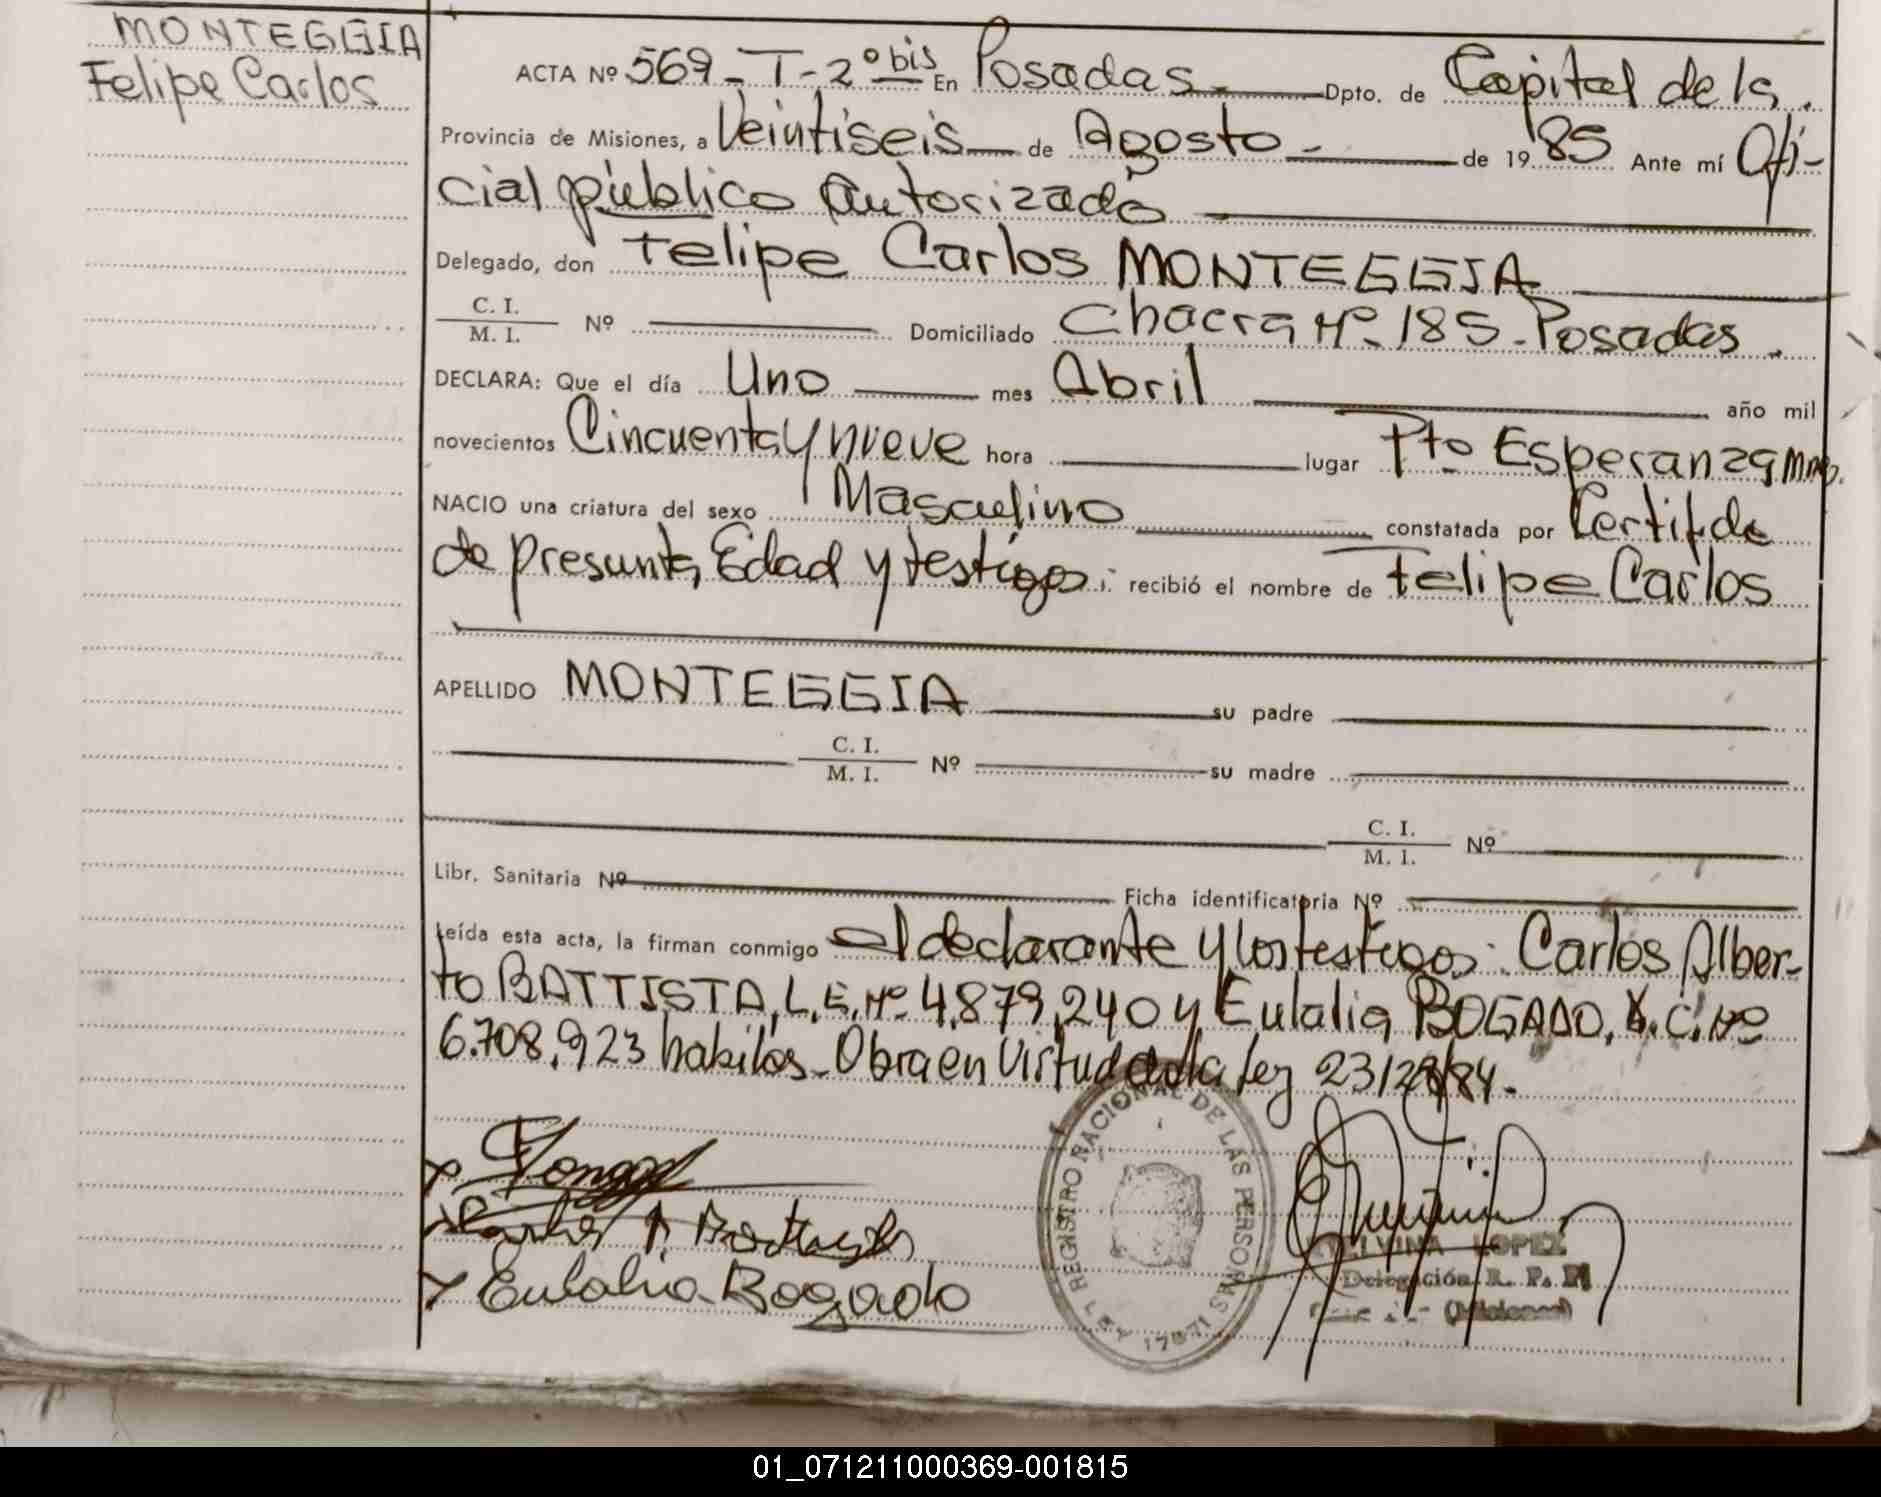 MONTEGGIA
Felipe Carlos
ACTA Nº 569-T-2º bis En Posadas Dpto. de Capital de la
Provincia de Misiones, a Veintiseis de Agosto de 1985 Ante mí Ofi-
cial público autorizado
Delegado, don Felipe Carlos MONTEGGIA
C. I.
M. I. Nº Domiciliado Chacra Nº 185 - Posadas.
DECLARA: Que el día Uno mes Abril año mil
novecientos Cincuenta y nueve hora lugar Pto Esperanza Mnes.
NACIO una criatura del sexo Masculino constatada por Certif. de
de presunta Edad y testigos; recibió el nombre de Felipe Carlos
APELLIDO MONTEGGIA su padre
C. I.
M. I. Nº su madre
C. I.
M. I. Nº
Libr. Sanitaria Nº Ficha identificatoria Nº
Leída esta acta, la firman conmigo el declarante y los testigos: Carlos Alber-
to BATTISTA, L.E. Nº 4.879.240 y Eulalia BOGADO, L.C. Nº
6.708.923 habiles - Obra en virtud de la ley 23128/84.
REGISTRO NACIONAL DE LAS PERSONAS
LEY 17671
Carlos A. Battista
Eulalia Bogado
LOPEZ
Delegación R. P. P.
(Misiones)
01_071211000369-001815